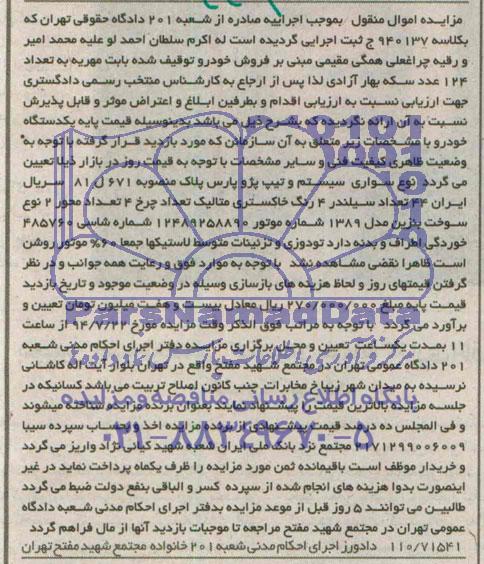 مزایده اموال منقول بموجب اجراییه صادره از شعبه ۲۰۱ دادگاه حقوقی تهران که
بکلاسه ۹۴۰۱۳۷ ج ثبت اجرایی گردیده است له اکرم سلطان احمد لو علیه محمد امیر
و رقیه چراغعلی همگی مقیمی مبنی بر فروش خودرو توقیف شده بابت مهریه به تعداد
۱۲۴ عدد سکه بهار آزادی لذا پس از ارجاع به کارشناس منتخب رسمی دادگستری
جهت ارزیابی نسبت به ارزیابی اقدام و بطرفین ابلاغ و اعتراض موثر و قابل پذیرش
نسبت به آن ارائه نگردیده که بشرح ذیل می باشد بدینوسیله قیمت پایه یکدستگاه
خودرو با مشخصات زیر متعلق به آن سازمان که مورد بازدید قرار گرفته با توجه به
وضعیت ظاهری کیفیت فنی و سایر مشخصات با توجه به قیمت روز در بازار ذیلا تعیین
می گردد نوع سواری سیستم و تیپ پژو پارس پلاک منصوبه ۶۷۱ ل ۸۱ سریال
ایران ۴۴ تعداد سیلندر ۴ رنگ خاکستری متالیک تعداد چرخ ۴ تعداد محور ۲ نوع
سوخت بنزین مدل ۱۳۸۹ شماره موتور ۱۲۴۸۹۲۵۸۸۹۰ شماره شاسی ۴۸۵۷۶۰
خوردگی اطراف و بدنه دارد تودوزی و تزئینات متوسط لاستیکها جمعا ۶۰% موتور روشن
است ظاهرا نقصی مشاهده نشد با توجه به موارد فوق و رعایت همه جوانب و در نظر
گرفتن قیمتهای روز و لحاظ هزینه های بازسازی وسیله در وضعیت موجود و تاریخ بازدید
قیمت پایه مبلغ ۲۷۰/۰۰۰/۰۰۰ ریال معادل بیست و هفت میلیون تومان تعیین و
برآورد می گردد با توجه به مراتب فوق الذکر وقت مزایده مورخ ۹۴/۷/۲۲ از ساعت
۱۱ بمدت یکساعت تعیین و محل برگزاری مزایده دفتر اجرای احکام مدنی شعبه
۲۰۱ دادگاه عمومی تهران در مجتمع شهید مفتح واقع در تهران بلوار آیت اله کاشانی
نرسیده به میدان شهر زیبا خ مخابرات جنب کانون اصلاح تربیت می باشد کسانیکه در
جلسه مزایده بالاترین قیمت را پیشنهاد نمایند بعنوان برنده مزایده شناخته میشوند
و فی المجلس ده درصد قیمت پیشنهادی از برنده مزایده اخذ و بحساب سپرده سیبا
۲۱۷۱۲۹۹۰۰۶۰۰۹ مجتمع نزد بانک ملی ایران شعبه شهید کیانی نژاد واریز می گردد
و خریدار موظف است باقیمانده ثمن مورد مزایده را ظرف یکماه پرداخت نماید در غیر
اینصورت بدوا هزینه های انجام شده از سپرده کسر و الباقی بنفع دولت ضبط می گردد
طالبین می توانند ۵ روز قبل از موعد مزایده بدفتر اجرای احکام مدنی شعبه دادگاه
عمومی تهران در مجتمع شهید مفتح مراجعه تا موجبات بازدید آنها از مال فراهم گردد
۱۱۰/۷۱۵۴۱ دادورز اجرای احکام مدنی شعبه ۲۰۱ خانواده مجتمع شهید مفتح تهران
ParsNamadData
پایگاه اطلاع رسانی مناقصه و مزایده
۰۲۱-۸۸۳۴۹۶۷۰-۵